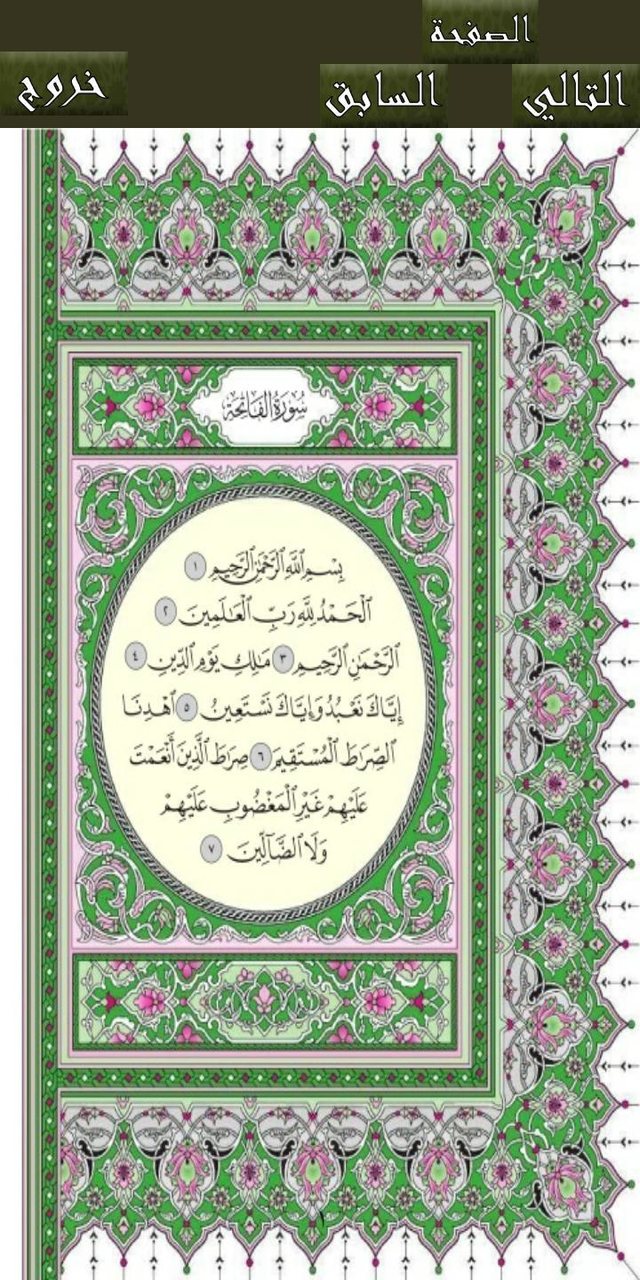 الصفحة
التالي السابق خروج
سُورَةُ الفَاتِحَةِ
بِسْمِ ٱللَّهِ ٱلرَّحْمَٰنِ ٱلرَّحِيمِ ١
ٱلْحَمْدُ لِلَّهِ رَبِّ ٱلْعَٰلَمِينَ ٢
ٱلرَّحْمَٰنِ ٱلرَّحِيمِ ٣ مَٰلِكِ يَوْمِ ٱلدِّينِ ٤
إِيَّاكَ نَعْبُدُ وَإِيَّاكَ نَسْتَعِينُ ٥ ٱهْدِنَا
ٱلصِّرَٰطَ ٱلْمُسْتَقِيمَ ٦ صِرَٰطَ ٱلَّذِينَ أَنْعَمْتَ
عَلَيْهِمْ غَيْرِ ٱلْمَغْضُوبِ عَلَيْهِمْ
وَلَا ٱلضَّآلِّينَ ٧
١